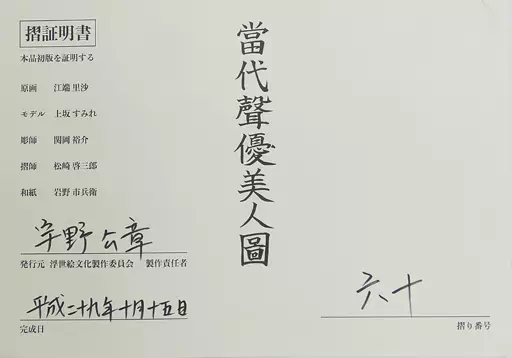 摺証明書
本品初版を証明する
原画 江端 里沙
モデル 上坂 すみれ
彫師 関岡 裕介
摺師 松崎 啓三郎
和紙 岩野 市兵衛
宇野公章
発行元 浮世絵文化製作委員会 製作責任者
平成二十九年十月十五日
完成日
當代聲優美人圖
六十
摺り番号